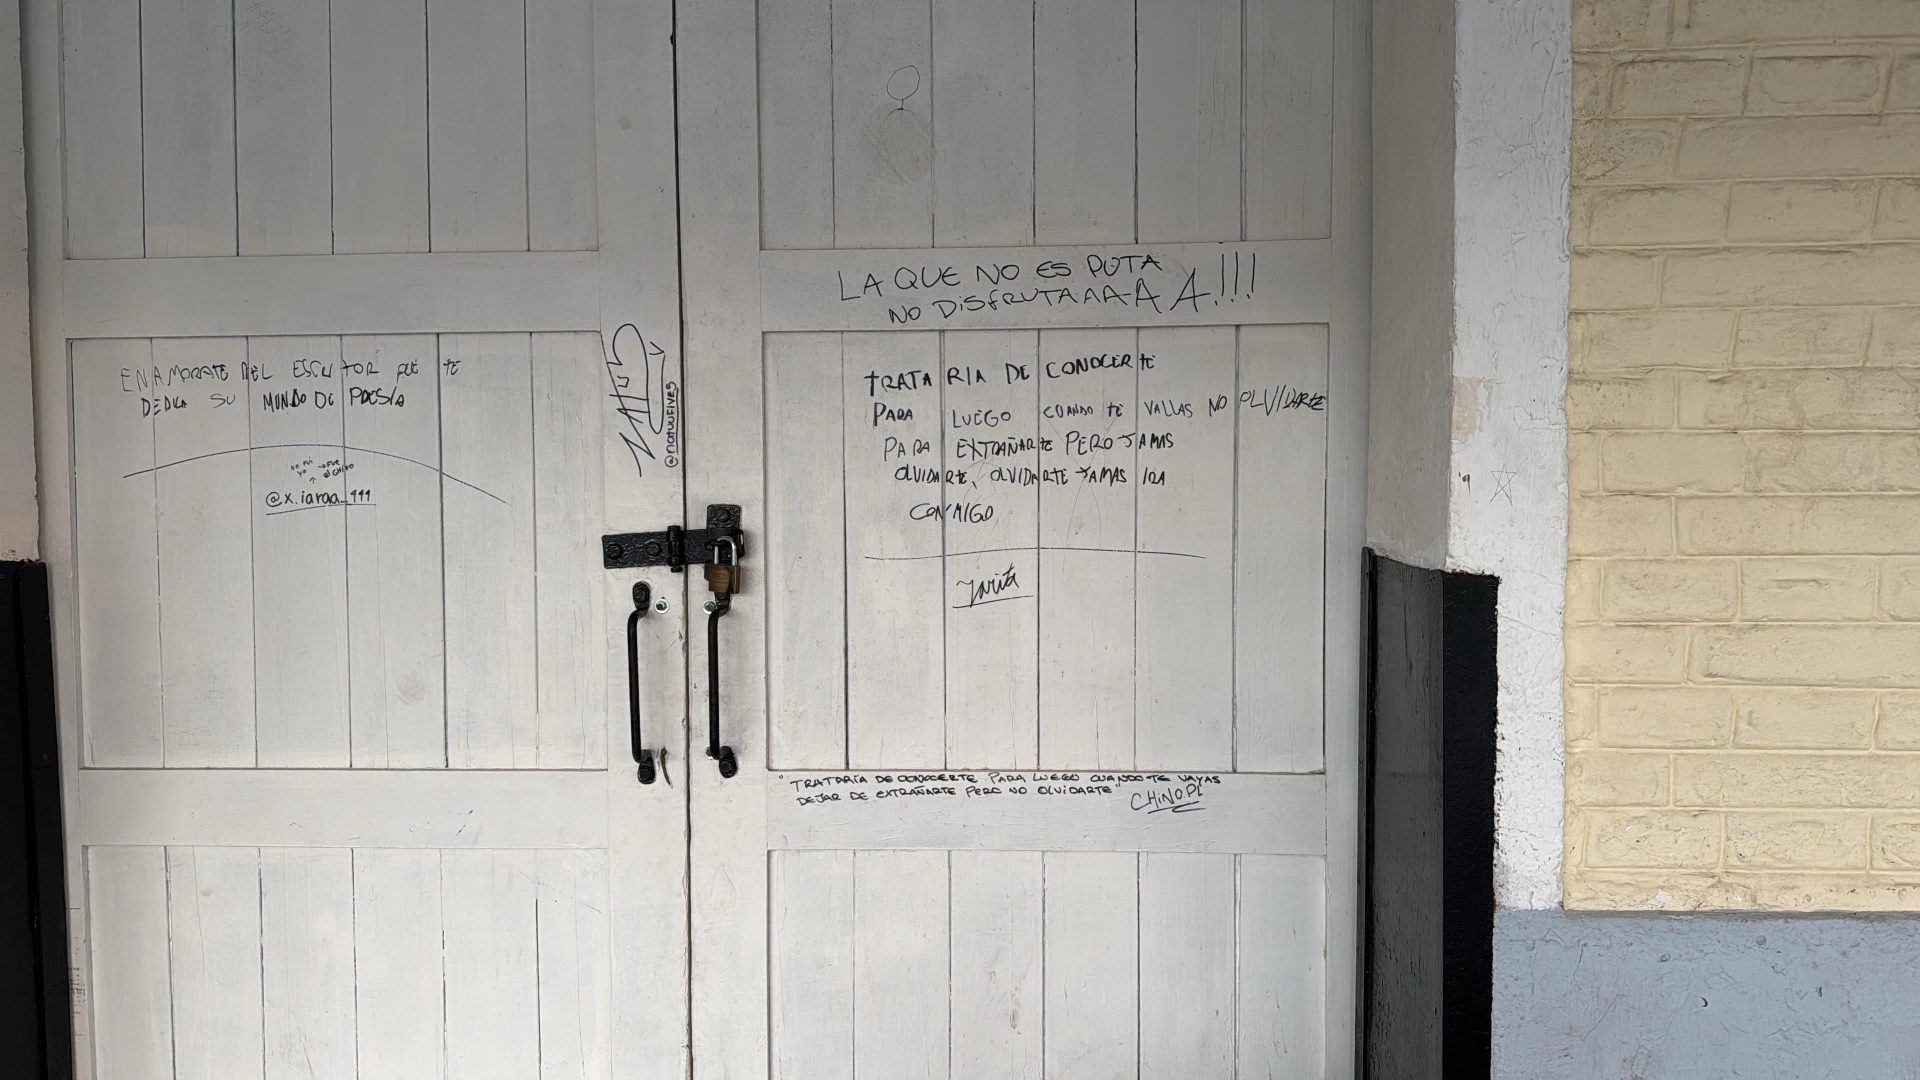 LA QUE NO ES PUTA
NO DISFRUTAAAAA A.!!!
ENAMORATE DEL ESCRITOR QUE TE
DEDICA SU MUNDO DE POESÍA
NO FUI YO → FUE el CHINO
@x.iaraa_111
@natuufive5
TRATARIA DE CONOCERTE
PARA LUEGO CUANDO TE VALLAS NO OLVIDARTE
PARA EXTRAÑARTE PERO JAMAS
OLVIDARTE, OLVIDARTE JAMAS IRA
CONMIGO
"TRATARÍA DE CONOCERTE PARA LUEGO CUANDO TE VAYAS
DEJAR DE EXTRAÑARTE PERO NO OLVIDARTE"
CHINO.PL